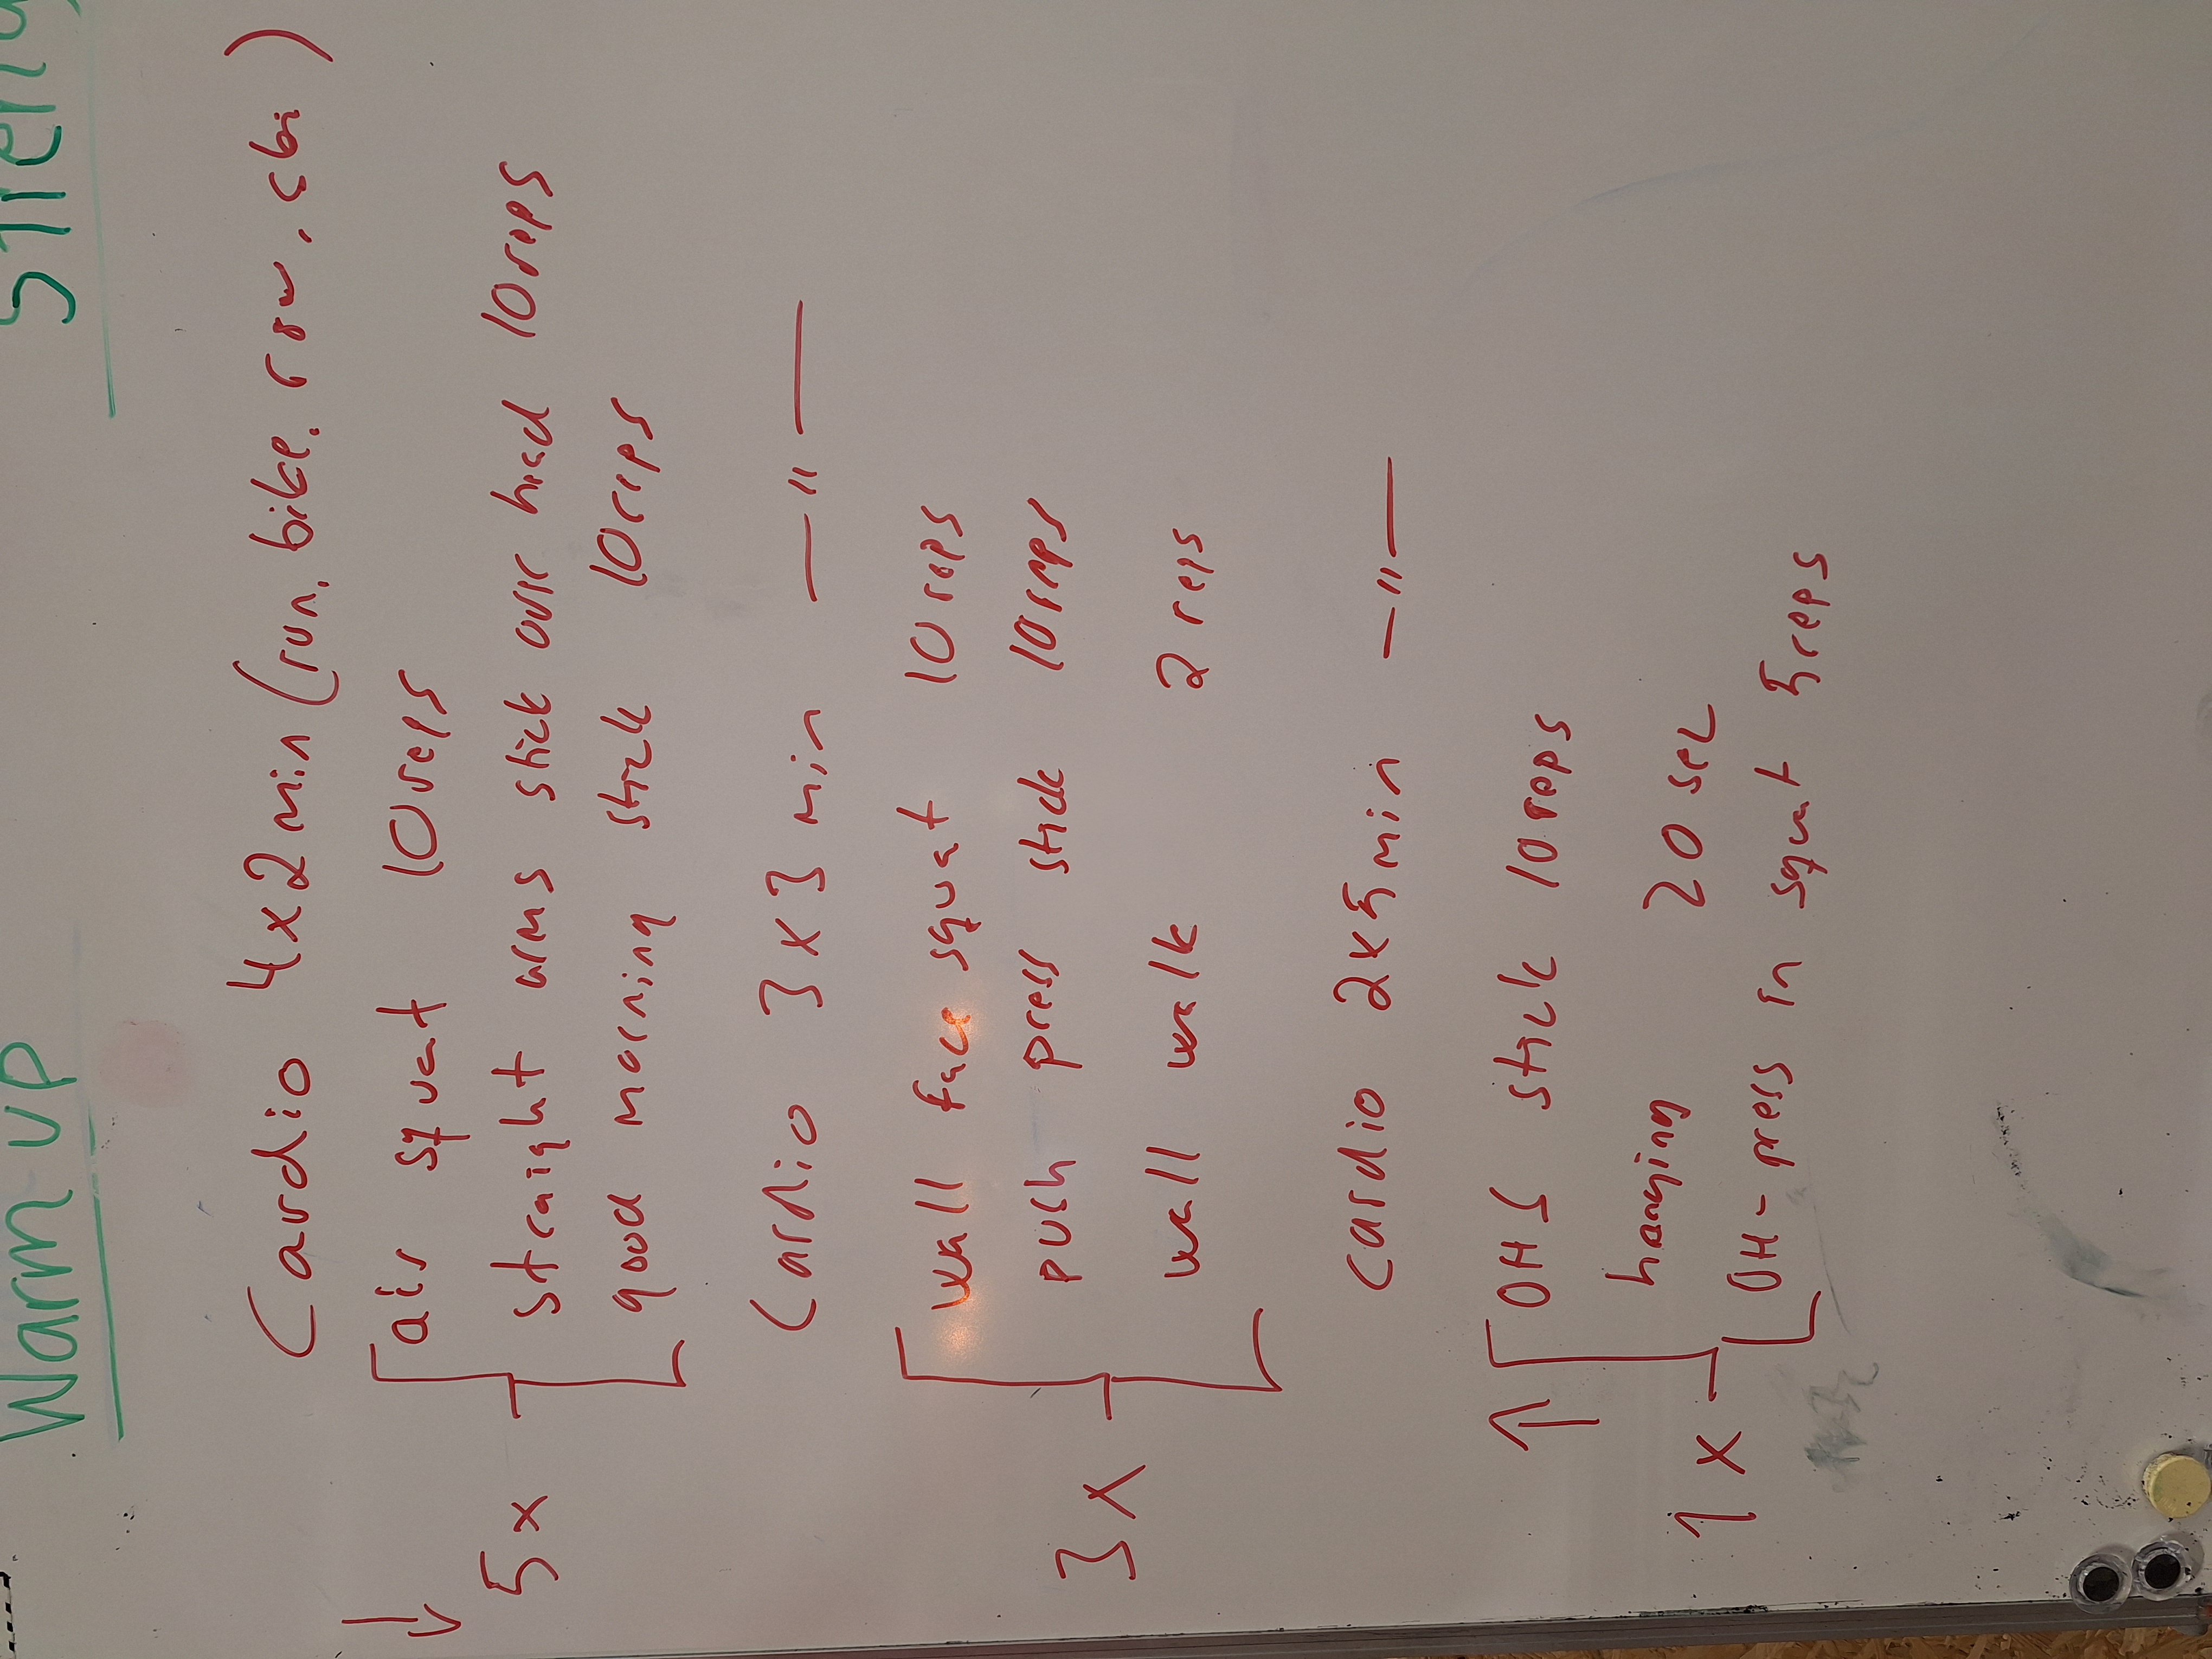 Warm-up
Cardio 4x2min (run, bike, row, ski)
↓
air squat 10reps
5x straight arms stick over head 10reps
good morning stick 10reps
Cardio 3x3 min —"—
wall face squat 10 reps
3x push press stick 10reps
wall walk 2 reps
Cardio 2x5min —"—
↑ OHS stick 10reps
hanging 20 sec
1x
OH-press in squat 5reps